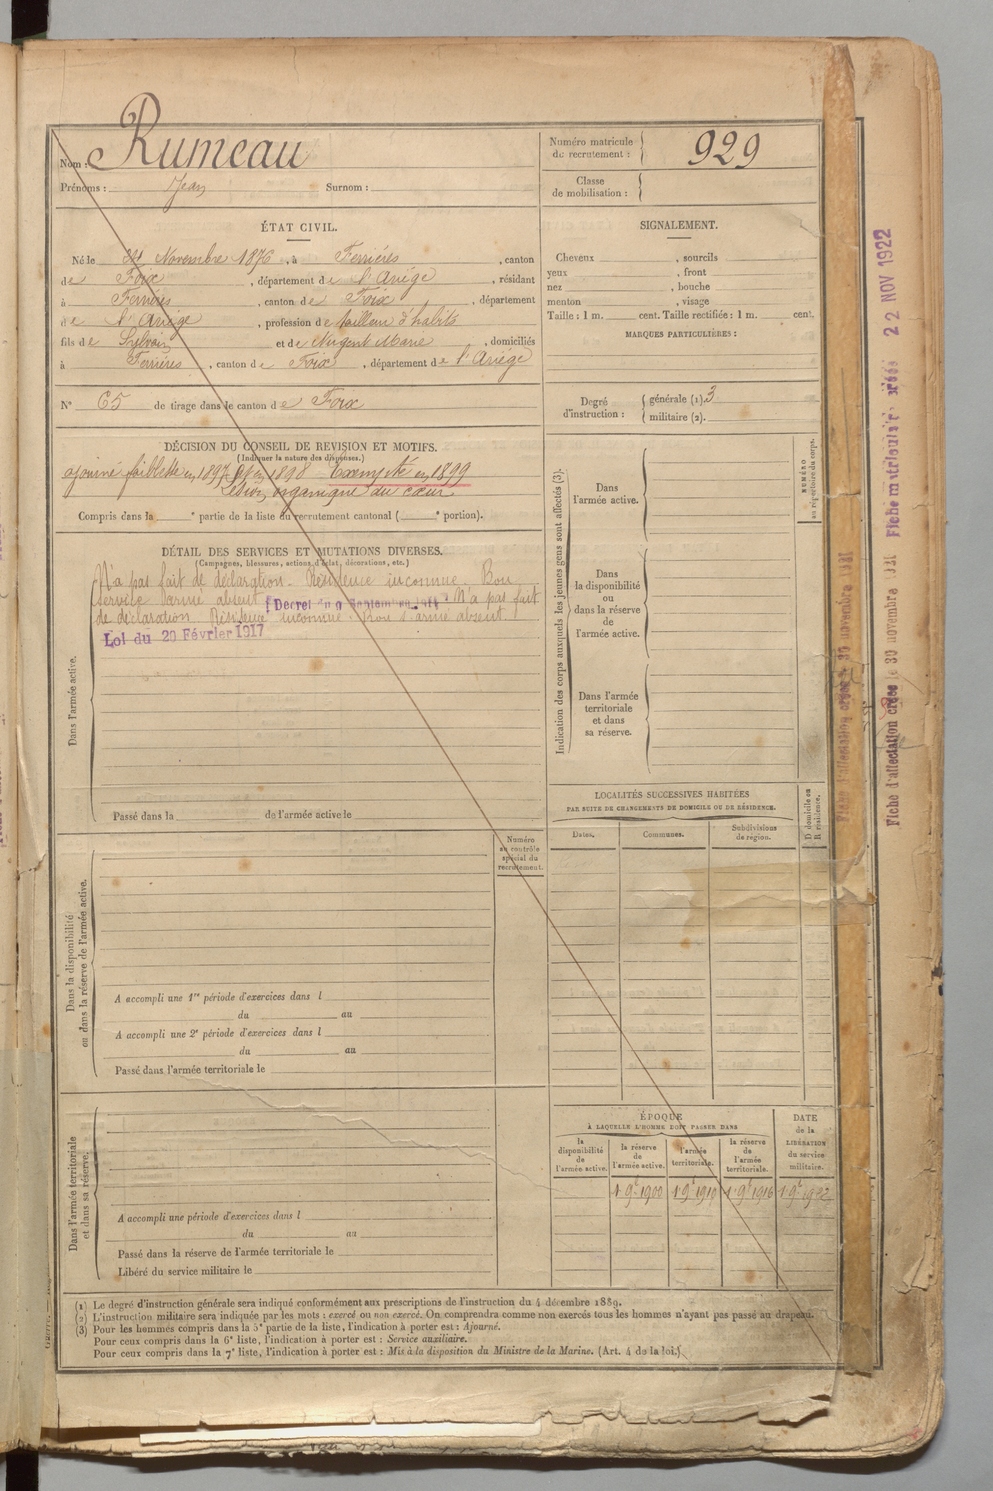 Nom : Rumeau
Prénoms : Jean Surnom :
Numéro matricule
du recrutement : 929
Classe
de mobilisation :
ÉTAT CIVIL.
Né le Novembre 1876, à Ferrières, canton
de Foix, département de l'Ariège, résidant
à Ferrières, canton de Foix, département
de l'Ariège, profession de tailleur d'habits
fils de Sylvain et de Nugent Marie, domiciliés
à Ferrières, canton de Foix, département de l'Ariège
N° 65 de tirage dans le canton de Foix
SIGNALEMENT.
Cheveux , sourcils
yeux , front
nez , bouche
menton , visage
Taille : 1 m. cent. Taille rectifiée : 1 m. cent.
MARQUES PARTICULIÈRES :
Degré
d'instruction :
générale (1). 3
militaire (2).
DÉCISION DU CONSEIL DE REVISION ET MOTIFS.
(Indiquer la nature des dispenses.)
ajourné faiblesse en 1897 en 1898 Exempté en 1899
Lésion organique du cœur
Compris dans la e partie de la liste du recrutement cantonal ( e portion).
DÉTAIL DES SERVICES ET MUTATIONS DIVERSES.
(Campagnes, blessures, actions d'éclat, décorations, etc.)
N'a pas fait de déclaration. Résidence inconnue. Bon
service armé absent Décret du 9 Septembre 1914 N'a pas fait
de déclaration. Résidence inconnue. armé absent.
Loi du 20 Février 1917
Dans l'armée active.
Passé dans la de l'armée active le
Indication des corps auxquels les jeunes gens sont affectés (3).
NUMÉRO
au répertoire du corps.
Dans
l'armée active.
Dans
la disponibilité
ou
dans la réserve
de
l'armée active.
Dans l'armée
territoriale
et dans
sa réserve.
LOCALITÉS SUCCESSIVES HABITÉES
PAR SUITE DE CHANGEMENTS DE DOMICILE OU DE RÉSIDENCE.
Dates.
Communes.
Subdivisions
de région.
D domicile ou
R résidence.
Numéro
au contrôle
spécial du
recrutement.
Dans la disponibilité
ou dans la réserve de l'armée active.
A accompli une 1re période d'exercices dans l
du au
A accompli une 2e période d'exercices dans l
du au
Passé dans l'armée territoriale le
Dans l'armée territoriale
et dans sa réserve.
A accompli une période d'exercices dans l
du au
Passé dans la réserve de l'armée territoriale le
Libéré du service militaire le
ÉPOQUE
À LAQUELLE L'HOMME DOIT PASSER DANS
la
disponibilité
de
l'armée active.
la réserve
de
l'armée active.
l'armée
territoriale.
la réserve
de
l'armée
territoriale.
DATE
de la
LIBÉRATION
du service
militaire.
1 9e 1900 1 9e 1910 1 9e 1916 1 9e 1922
(1) Le degré d'instruction générale sera indiqué conformément aux prescriptions de l'instruction du 4 décembre 1889.
(2) L'instruction militaire sera indiquée par les mots : exercé ou non exercé. On comprendra comme non exercés tous les hommes n'ayant pas passé au drapeau.
(3) Pour les hommes compris dans la 5e partie de la liste, l'indication à porter est : Ajourné.
Pour ceux compris dans la 6e liste, l'indication à porter est : Service auxiliaire.
Pour ceux compris dans la 7e liste, l'indication à porter est : Mis à la disposition du Ministre de la Marine. (Art. 4 de la loi.)
Fiche d'affectation créée le 30 novembre 1921
Fiche d'affectation créée le 30 novembre 1921 Fiche matriculaire créée 22 NOV 1922